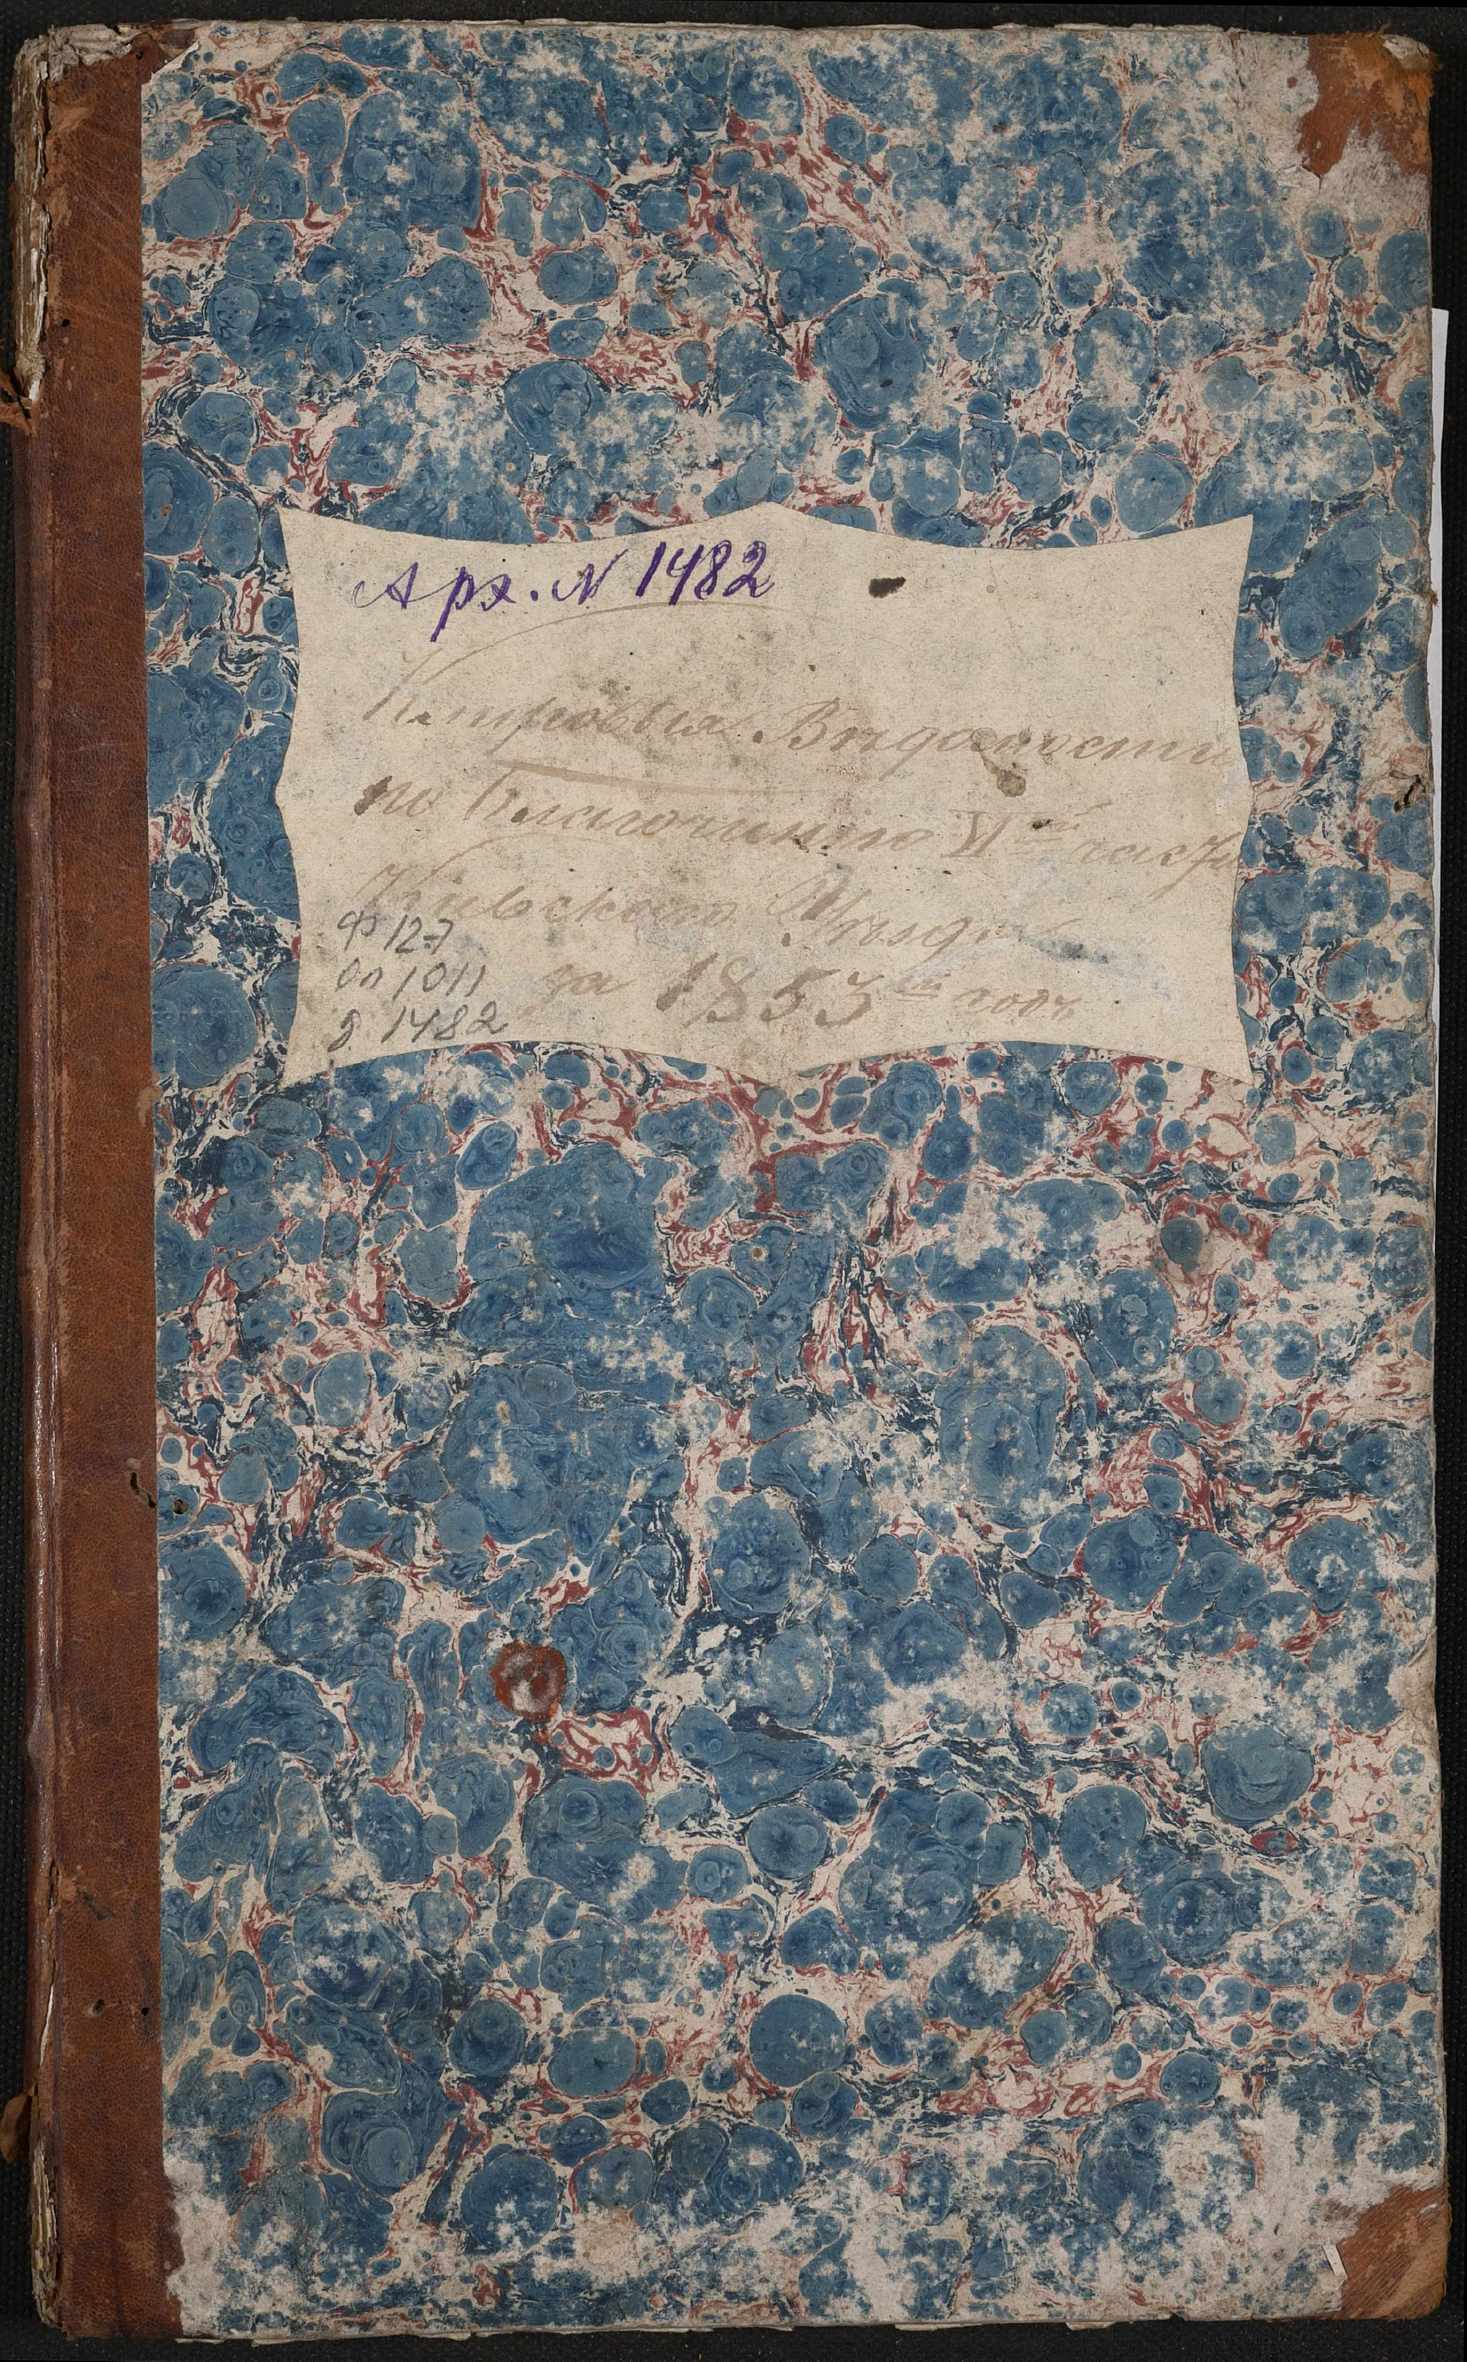 Арх. № 1482
Клировыя Вѣдомости
по благочинію VI части
Кіевскаго Уѣзда
за 1853й годъ
ф 127
оп 1011
д 1482